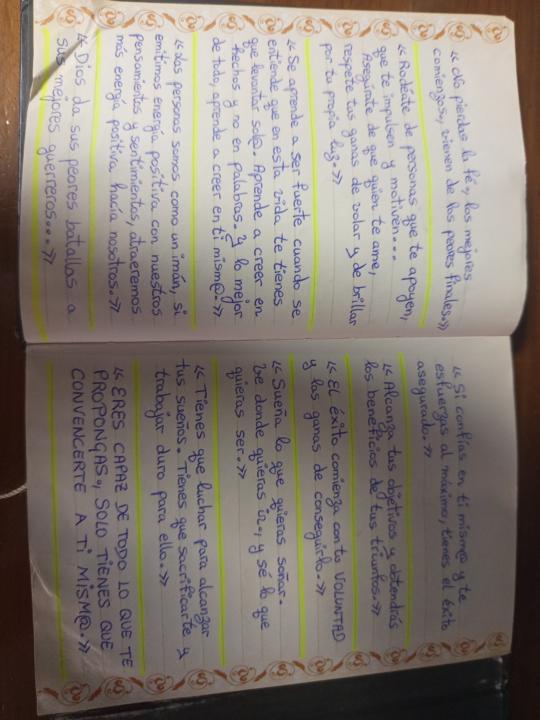 « No pierdas la fé, los mejores
comienzos, vienen de los peores finales.»
« Rodéate de personas que te apoyen,
que te impulsen y motiven...
Asegúrate de que quien te ame,
respete tus ganas de volar y de brillar
por tu propia luz.»
« Se aprende a ser fuerte cuando se
entiende que en esta vida te tienes
que levantar sol@. Aprende a creer en
hechos y no en palabras. Y lo mejor
de todo, aprende a creer en ti mism@.»
« Las personas somos como un imán, si
emitimos energía positiva con nuestros
pensamientos y sentimientos, atraeremos
más energía positiva hacia nosotros.»
« Dios da sus peores batallas a
sus mejores guerreros...»
« Si confías en ti mism@ y te
esfuerzas al máximo, tienes el éxito
asegurado.»
« Alcanza tus objetivos y obtendrás
los beneficios de tus triunfos.»
« El éxito comienza con tu VOLUNTAD
y las ganas de conseguirlo.»
« Sueña lo que quieras soñar.
Ve donde quieras ir, y sé lo que
quieras ser.»
« Tienes que luchar para alcanzar
tus sueños. Tienes que sacrificarte y
trabajar duro para ello.»
« ERES CAPAZ DE TODO LO QUE TE
PROPONGAS, SOLO TIENES QUE
CONVENCERTE A TI MISM@.»